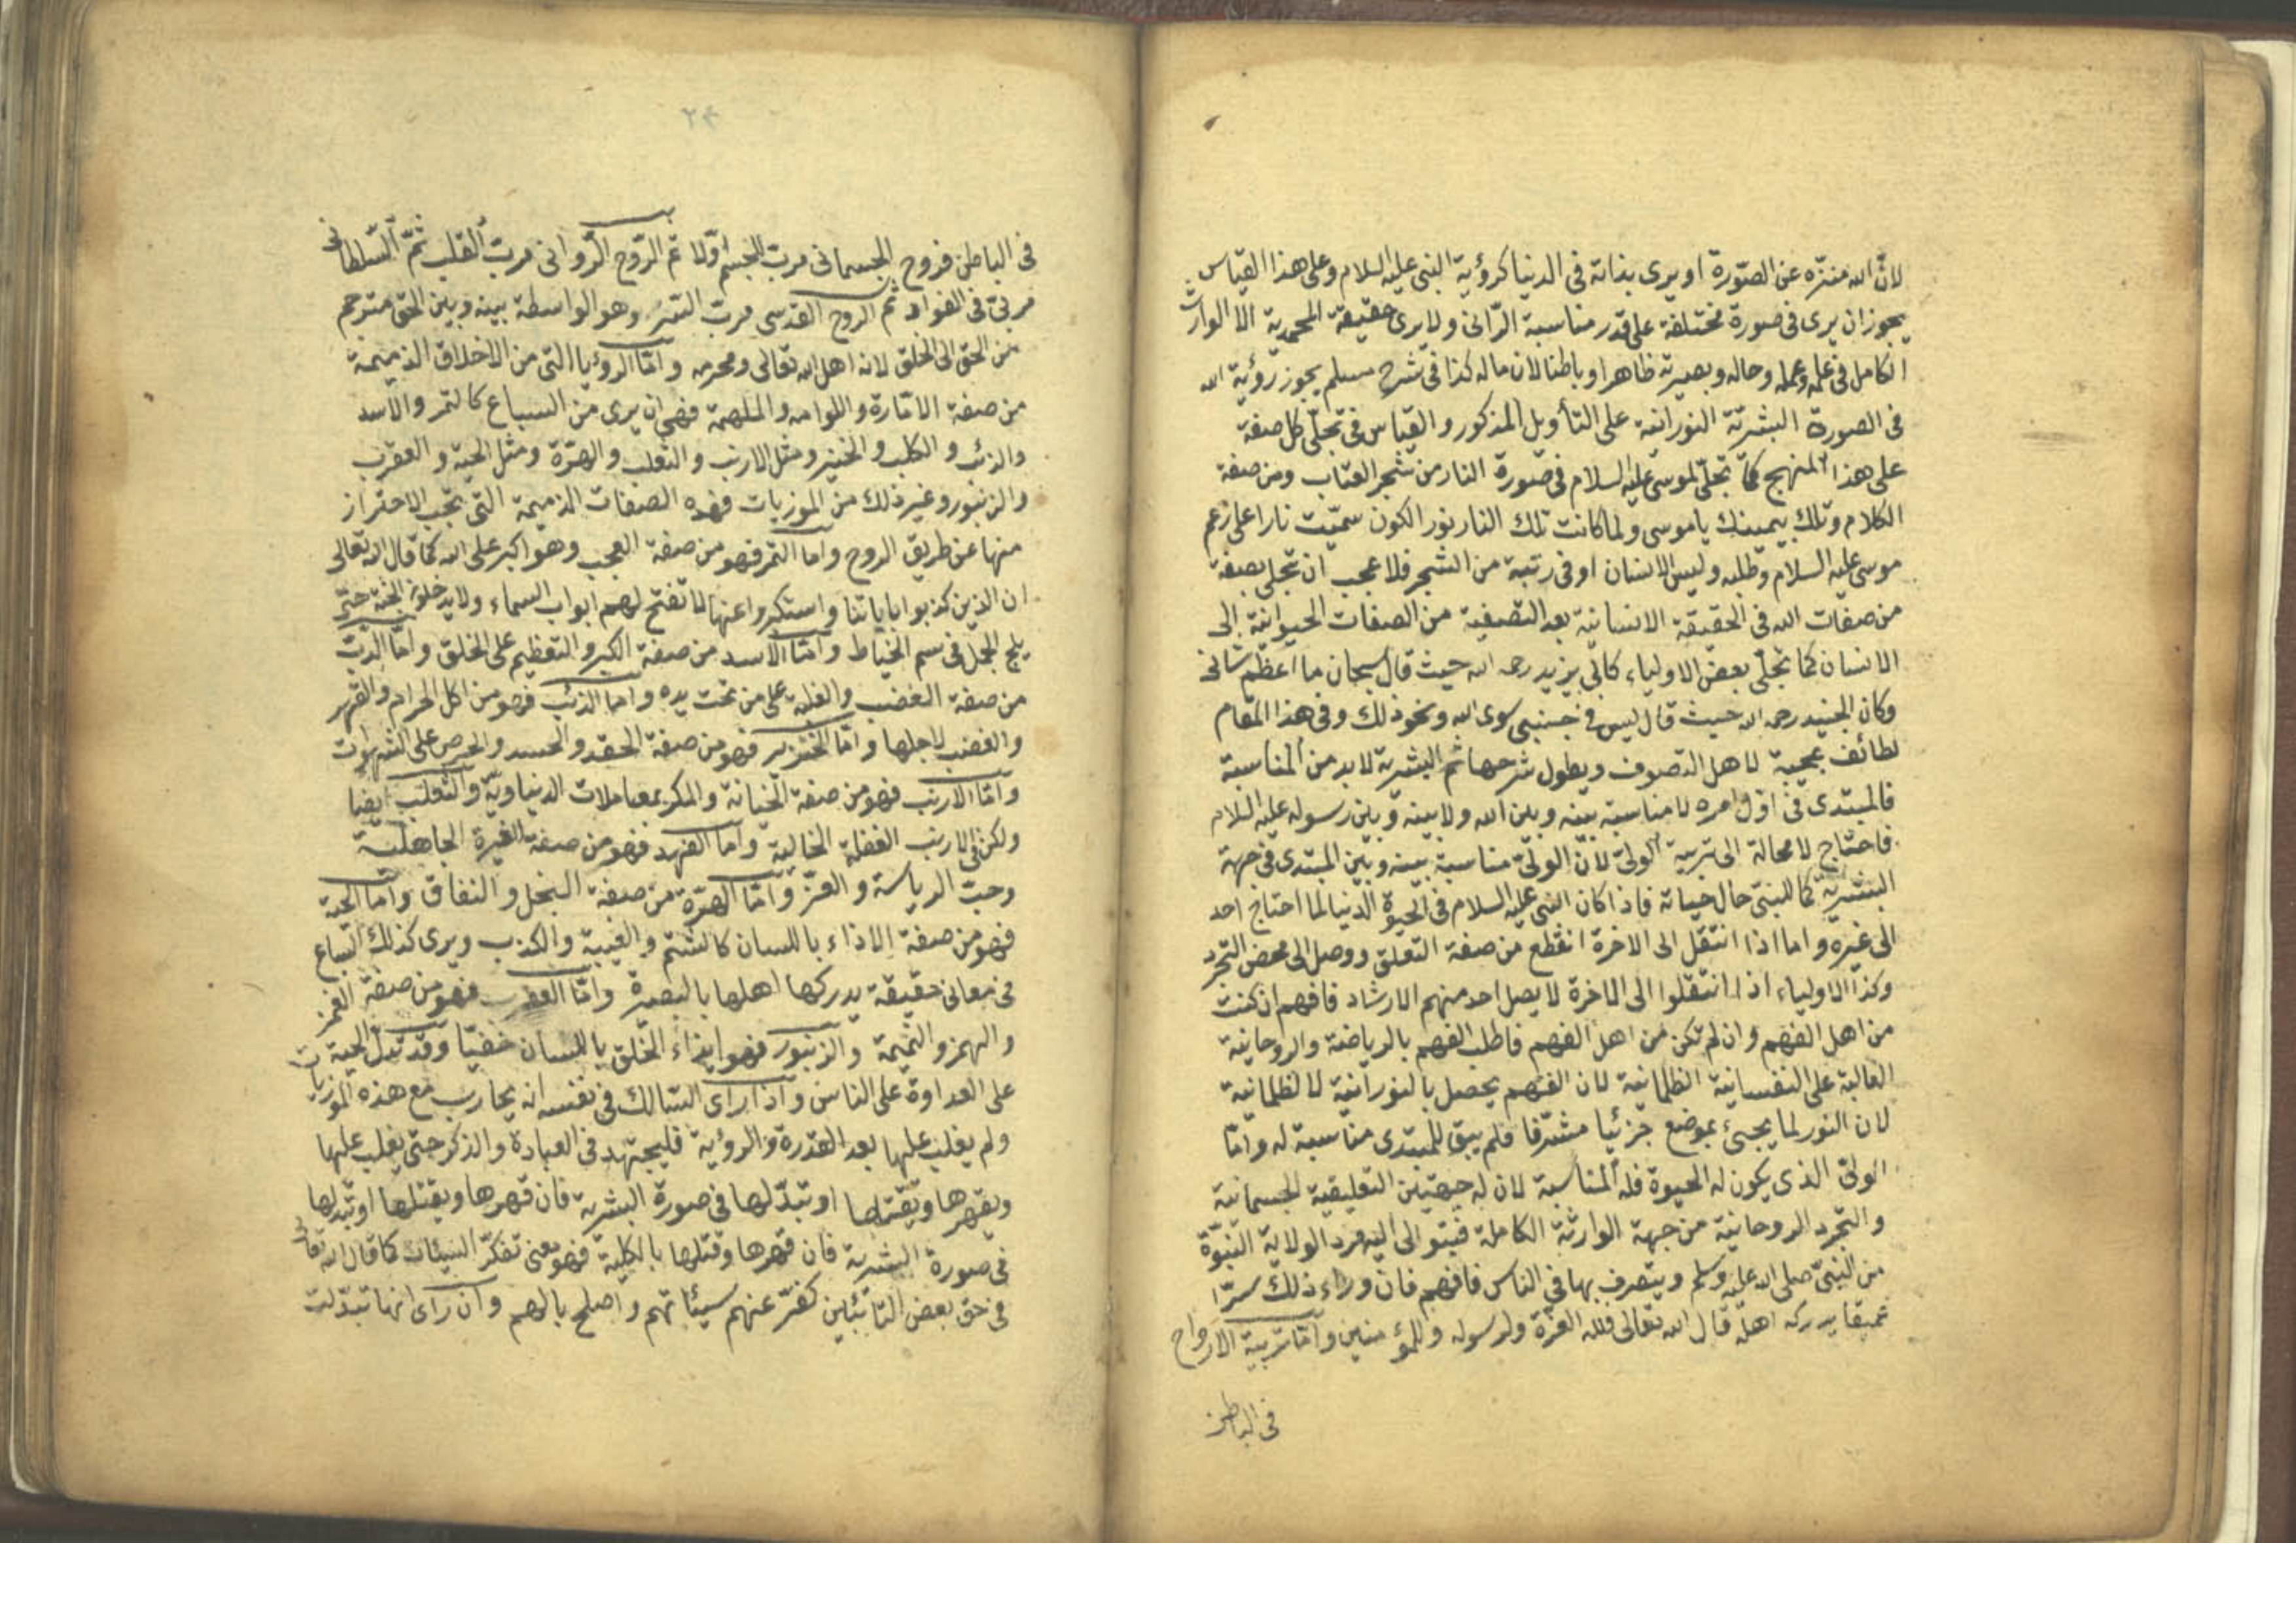 لانّ الله منزّه عن الصّورة او يرى بذاته فى الدنيا كرؤية النبى عليه السلام وعلى هذا القياس
يجوز ان يرى فى صورة مختلفة على قدر مناسبة الرّائى ولا يرى حقيقة المحمدية الا الوارث
الكامل فى علمه وعمله وحاله وبصيرته ظاهرا وباطنا لان ماله كذا فى شرح مسلم يجوز رؤية الله
فى الصورة البشريّة النورانية على التأويل المذكور والقياس فى تجلّى كل صفة
على هذا المنهج كما تجلّى لموسى عليه السلام فى صورة النار من شجر العناب ومن صفة
الكلام وتلك بيمينك يا موسى ولما كانت تلك النار نور الكون سمّيت نارا على زعم
موسى عليه السلام وطلبه وليس الانسان اوفى رتبة من الشجر فلا عجب ان تجلى بصفة
من صفات الله فى الحقيقة الانسانية بعد التصفية من الصفات الحيوانية الى
الانسان كما تجلّى بعض الاولياء كابى يزيد رحمه الله حيث قال سبحان ما اعظم شانى
وكان الجنيد رحمه الله حيث قال ليس فى جبنبى سوى الله ونحو ذلك وفى هذا المقام
لطائف عجيبة لاهل التصوف ويطول شرحها ثم البشرية لا بد من المناسبة
فالمبتدى فى اوّل امره لا مناسبة بينه وبين الله ولا بينه وبين رسوله عليه السلام
فاحتاج لا محالة الى تربية الولىّ لان الولىّ مناسبة بينه وبين المبتدى فى جهة
البشريّة كما للنبىّ حال حياته فاذا كان النبى عليه السلام فى الحيوة الدنيا لما احتاج احد
الى غيره واما اذا انتقل الى الاخرة انقطع من صفة التعلق ووصل الى محض التجرد
وكذا الاولياء اذا انتقلوا الى الاخرة لا يصل احد منهم الارشاد فافهم ان كنت
من اهل الفهم وان لم تكن من اهل الفهم فاطلب الفهم بالرياضة والروحانية
الغالبة على النفسانية الظلمانية لان الفهم يحصل بالنورانية لا لظلمانية
لان النور لما يجىئ بموضع جزئيا مشرقا فلم يبق للمبتدى مناسبة له وامّا
الولىّ الذى يكون له الحيوة فله المناسبة لان له جهتين التعليقية الجسمانية
والتجرد الروحانية من جهة الوارثة الكاملة فيتوالى اليه مرد الولاية النبوّة
من النبىّ صلى الله عليه وسلم ويتصرف بها فى الناس فافهم فان وراء ذلك سرّا
عميقا يدركه اهله قال الله تعالى فلله العزّة ولرسوله وللمؤمنين وامّا تربية الارواح
فى الباطن
٢٣
فى الباطن فروح الجسمانى مربّ الجسم اوّلا ثمّ الرّوح الرّوانى مربّ القلب ثمّ السّلطانى
مربىّ فى الفواد ثم الروح القدسى مربّ السّر وهو الواسطة بينه وبين الحق مترجم
من الحق الى الخلق لانه اهل الله تعالى ومحرمه وامّا الرؤيا التى من الاخلاق الذميمة
من صفة الامّارة واللوامه والملهمة فهى ان يرى من السباع كالنمر والاسد
والذئب والكلب والخنير ومثل الارنب والثعلب والهرّة ومثل الحية والعقرب
والزنبور وغير ذلك من الموزيات فهذه الصفات الذميمة التى يجب الاحتراز
منها عن طريق الروح واما النمر فهو من صفة العجب وهو اكبر على الله كما قال الله تعالى
ان الذين كذبوا باياتنا واستكبروا عنها لا تفتح لهم ابواب السماء ولا يدخلون الجنة حتى
يلج الجمل فى سم الخياط وامّا الاسد من صفة الكبر والتعظيم على الخلق وامّا الدبّ
من صفة الغضب والغلبة على من تحت يده واما الذئب فهو من اكل الحرام والقهر
والغضب لاجلها وامّا الخنزير فهو من صفة الحقد والحسد والحرص على الشهوات
وامّا الارنب فهو من صفة الخيانة والمكر بمعاملات الدنياويّة والثعلب ايضا
ولكن فى الارنب الغفلة الخالية واما الفهد فهو من صفة الغيرة الجاهلية
وحبّ الرياسة والعزّ وامّا الهرّة من صفة البخل والنفاق وامّا الحية
فهو من صفة الاذاء باللسان كالشتم والغيبة والكذب ويرى كذلك السباع
فى معانى حقيقة يدركها اهلها بالبصيرة وامّا العقرب فهو من صفة الغمز
والهمز والنميمة والزنبور فهو ايذاء الخلق باللسان خفيّا وقد تبدل الحية
على العداوة على الناس واذا راى السالك فى نفسه انه يحارب مع هذه الموزيات
ولم يغلب عليها بعد القدرة والرؤية فليجتهد فى العبادة والذكر حتى يغلب عليها
ويقهرها ويقتلها او تبدّلها فى صورة البشرية فان قهرها ويقتلها او تبدلها
فى صورة البشرية فان قهرها وقتلها بالكلية فهو معنى تفكرّ السيئات كما قال الله تعالى
فى حق بعض التائبين كفّر عنهم سيئاتهم واصلح بالهم وان راى انها تبدّلت